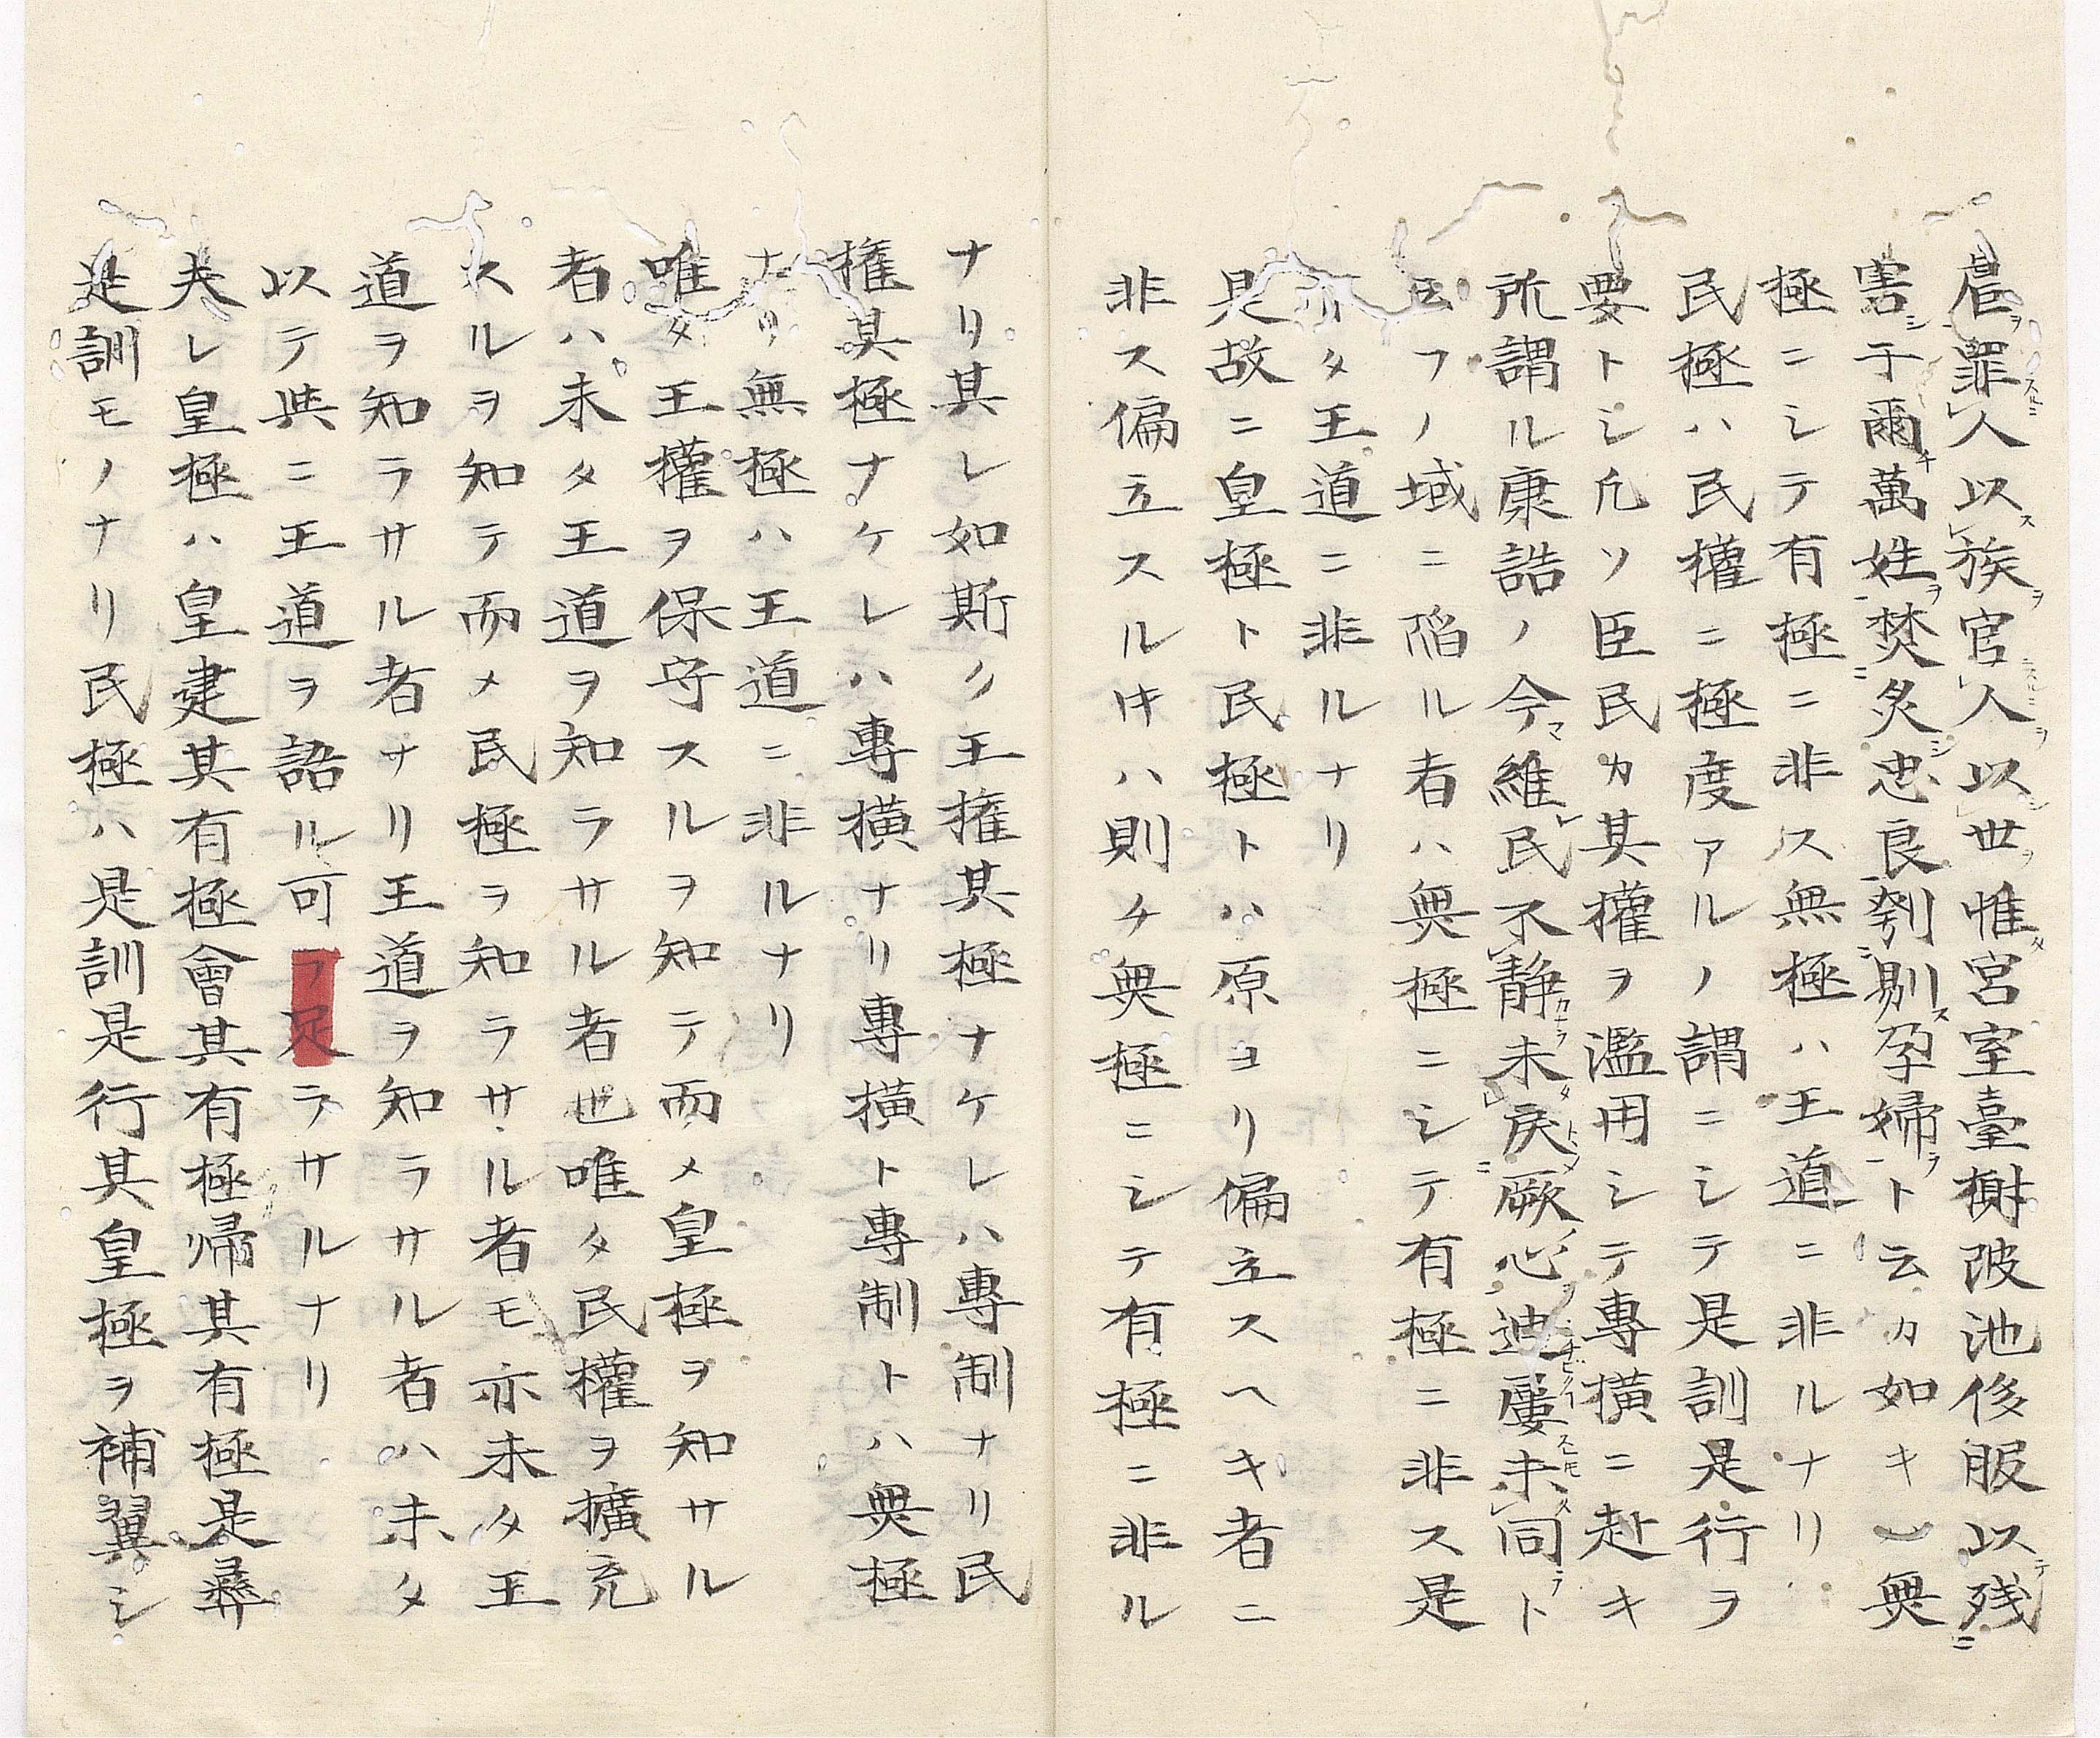 虐罪人以族官人以世惟宮室臺榭陂池侈服以残
害于爾萬姓焚炙忠良刳剔孕婦ト云カ如キ)無
極ニシテ有極ニ非ス無極ハ王道ニ非ルナリ
民極ハ民權ニ極度アルノ謂ニシテ是訓是行ヲ
要トシ凢ソ臣民カ其權ヲ濫用シテ專横ニ赴キ
所謂ル康誥ノ今維民不静未戻厥心迪屢未同ト
云フノ域ニ陥ル者ハ無極ニシテ有極ニ非ス是
亦タ王道ニ非ルナリ
是故ニ皇極ト民極トハ原ヨリ偏立スヘキ者ニ
非ス偏立スルキハ則チ無極ニシテ有極ニ非ル
ナリ其レ如斯ク王権其極ナケレハ專制ナリ民
権其極ナケレハ專横ナリ專横ト專制トハ無極
ナリ無極ハ王道ニ非ルナリ
唯タ王權ヲ保守スルヲ知テ而メ皇極ヲ知サル
者ハ未タ王道ヲ知ラサル者也唯タ民權ヲ擴充
スルヲ知テ而メ民極ヲ知ラサル者モ亦未タ王
道ヲ知ラサル者ナリ王道ヲ知ラサル者ハ未タ
以テ與ニ王道ヲ語ル可ヲ足ラサルナリ
夫レ皇極ハ皇建其有極會其有極帰其有極是彛
是訓モノナリ民極ハ是訓是行其皇極ヲ補翼シ